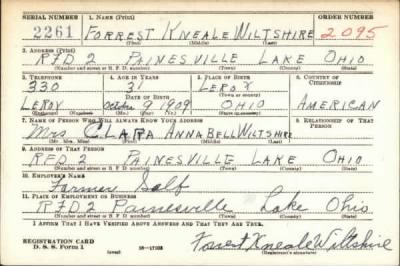 SERIAL NUMBER 1. NAME (Print) ORDER NUMBER
2261 FORREST KNEALE WILTSHIRE 2095
(First) (Middle) (Last)
2. ADDRESS (Print)
RFD 2 PAINESVILLE LAKE OHIO
(Number and street or R. F. D. number) (Town) (County) (State)
3. TELEPHONE 4. AGE IN YEARS 5. PLACE OF BIRTH 6. COUNTRY OF CITIZENSHIP
330 31 LEROY
DATE OF BIRTH (Town or county)
LEROY Oct 9 1909 OHIO AMERICAN
(Exchange) (Mo.) (Day) (Yr.) (State or country)
7. NAME OF PERSON WHO WILL ALWAYS KNOW YOUR ADDRESS 8. RELATIONSHIP OF THAT PERSON
Mrs CLARA ANNABELL WILTSHIRE
(Mr. Mrs. Miss) (First) (Middle) (Last)
9. ADDRESS OF THAT PERSON
RFD 2 PAINESVILLE LAKE OHIO
(Number and street or R. F. D. number) (Town) (County) (State)
10. EMPLOYER'S NAME
Farmer Self
11. PLACE OF EMPLOYMENT OR BUSINESS
RFD 2 Painesville Lake Ohio
(Number and street or R. F. D. number) (Town) (County) (State)
I AFFIRM THAT I HAVE VERIFIED ABOVE ANSWERS AND THAT THEY ARE TRUE.
REGISTRATION CARD
D. S. S. Form 1 Forrest Kneale Wiltshire
(over) (Registrant's signature)